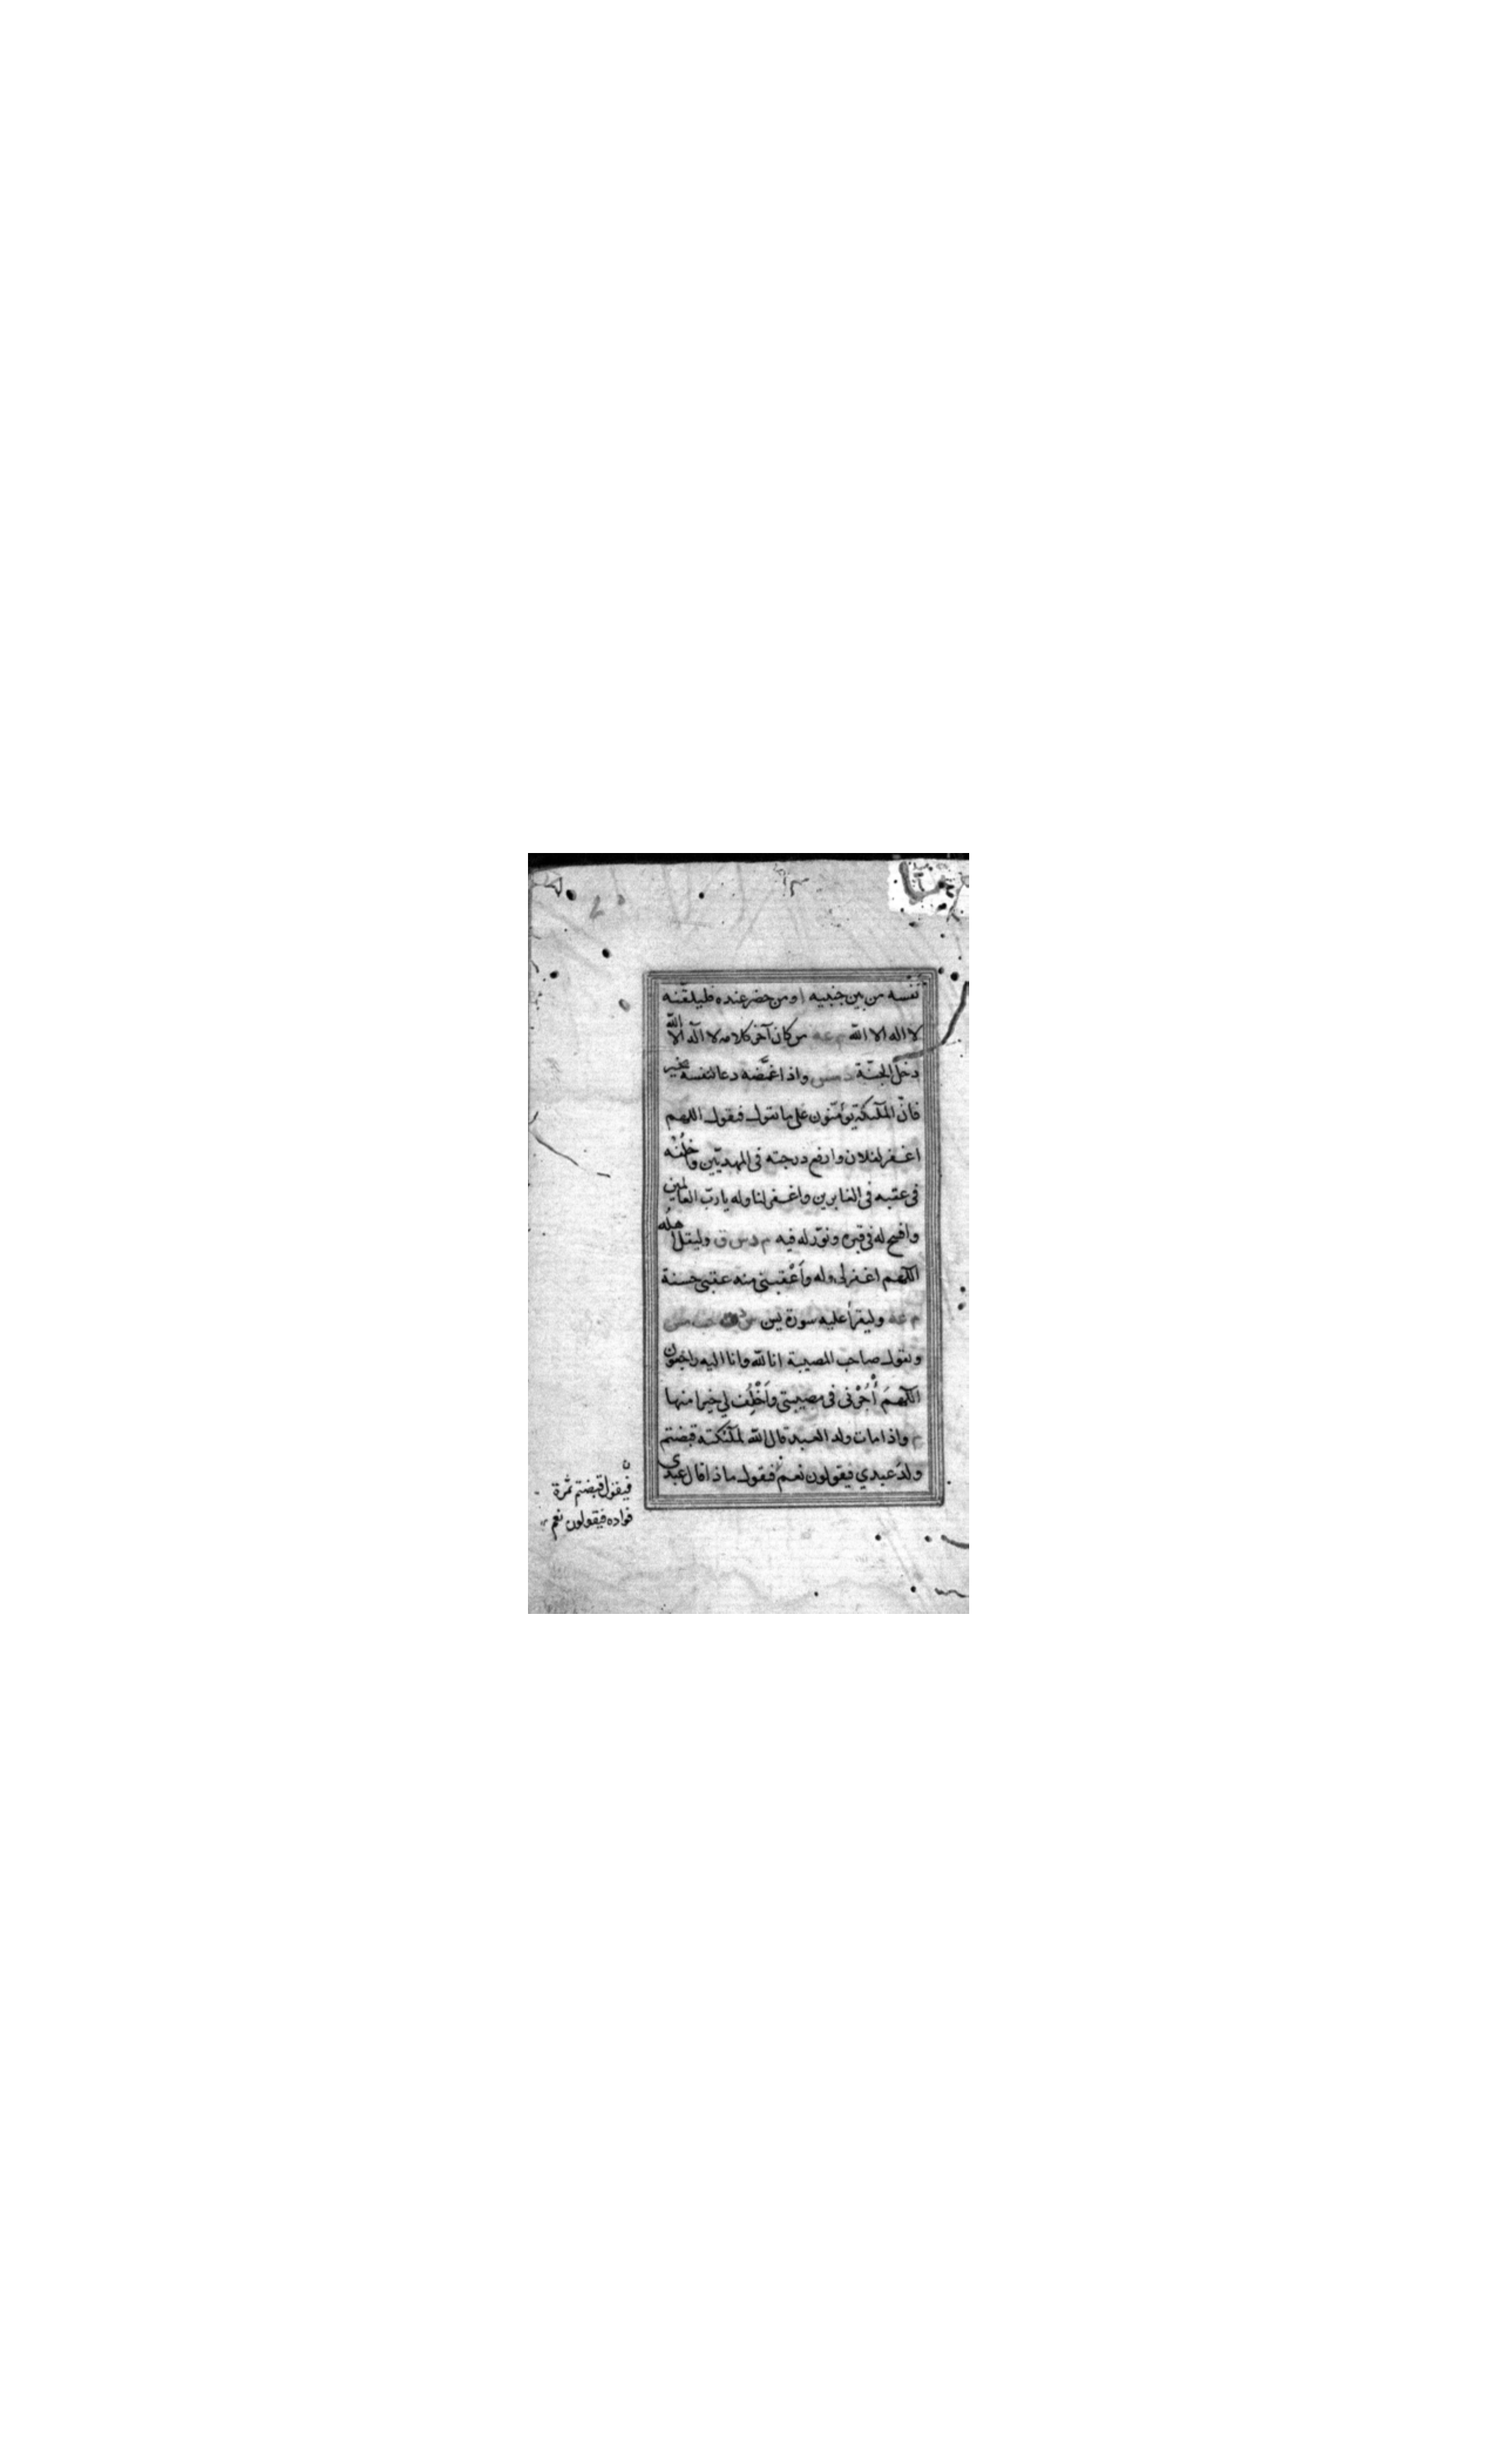 نفسه من بين جنبيه او من حضر عنده فليلقنه
لا اله الا الله م عه من كان آخر كلامه لا اله الا الله
دخل الجنّة د مس واذا غمّضه دعا لنفسه بخير
فانّ الملئكة يؤمّنون على ما يقول فيقول اللهم
اغفر لفلان وارفع درجته فى المهديّين واخلُفْه
فى عقبه فى الغابرين واغفر لنا وله يا ربّ العالمين
وافسح له فى قبره ونوّر له فيه م د س ق وليقل اهله
اللّهم اغفر لى وله وأعْقبنى منه عقبى حسنة
م عه وليقرأ عليه سورة يس س
ويقول صاحب المصيبة انا لله وانا اليه راجعون
اللّهمَ أْجُرْنى فى مصيبتى وأَخْلِف لي خيرا منها
م واذا مات ولد العبد قال الله لملئكته قبضتم
ولدَ عبدي فيقولون نعم فيقول ماذا قال عبدي
فيقول قبضتم ثمرة
فواده فيقولون نعم